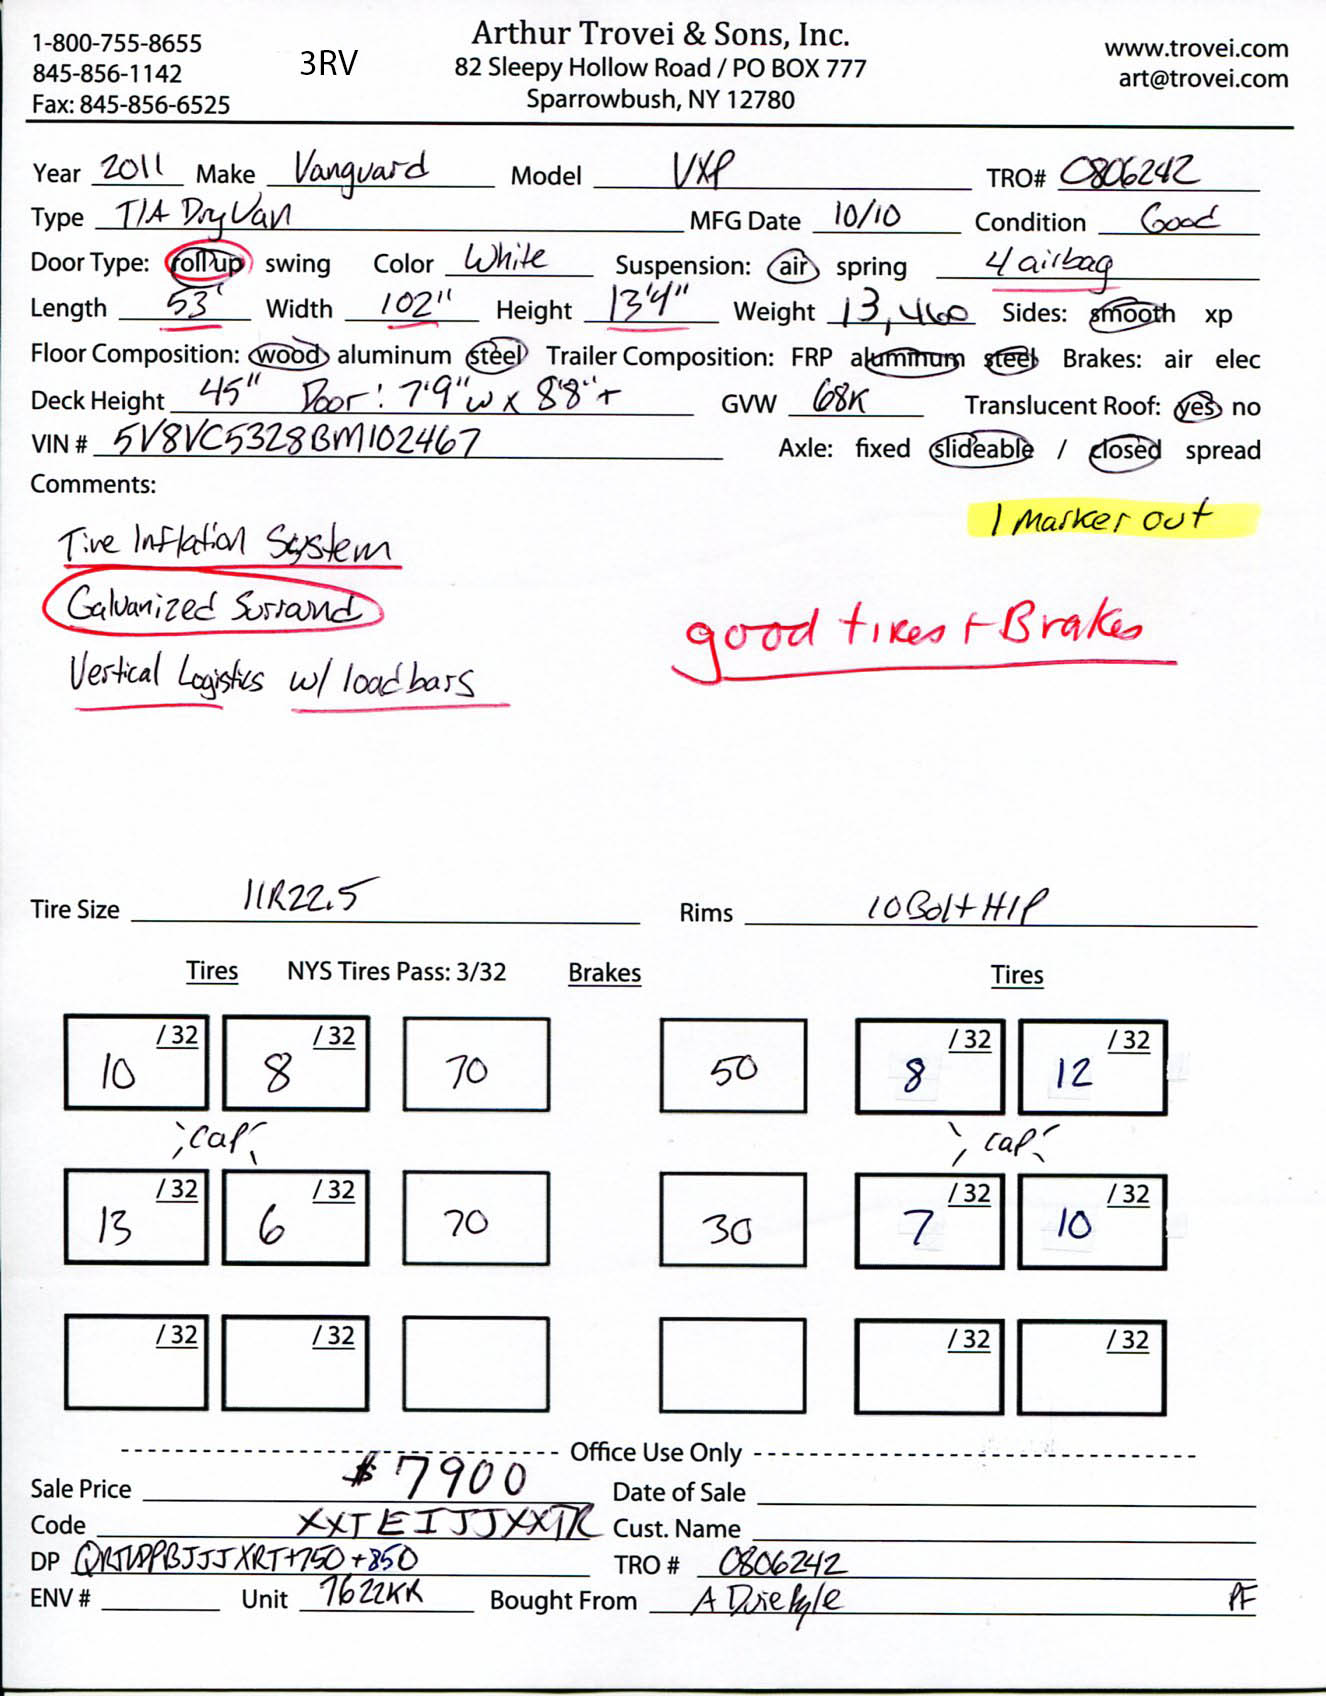 1-800-755-8655
845-856-1142
Fax: 845-856-6525
3RV
Arthur Trovei & Sons, Inc.
82 Sleepy Hollow Road / PO BOX 777
Sparrowbush, NY 12780
www.trovei.com
art@trovei.com
Year 2011 Make Vanguard Model VXP TRO# 0806242
Type T/A Dry Van MFG Date 10/10 Condition Good
Door Type: roll up swing Color White Suspension: air spring 4 airbag
Length 53' Width 102" Height 13'4" Weight 13,460 Sides: smooth xp
Floor Composition: wood aluminum steel Trailer Composition: FRP aluminum steel Brakes: air elec
Deck Height 45" Door: 7'9"w x 8'8"+ GVW 68K Translucent Roof: yes no
VIN # 5V8VC5328BM102467 Axle: fixed slideable / closed spread
Comments:
1 Marker out
Tire Inflation System
Galvanized Surround
good tires + Brakes
Vertical Logistics w/ load bars
Tire Size 11R22.5 Rims 10 Bolt H/P
Tires NYS Tires Pass: 3/32 Brakes Tires
10 /32 8 /32 70 50 8 /32 12 /32
cap cap
13 /32 6 /32 70 30 7 /32 10 /32
/32 /32 /32 /32
Office Use Only
Sale Price $7900 Date of Sale
Code XXTEIJJXXTR Cust. Name
DP +750+850 TRO # 0806242
ENV # Unit 7622KK Bought From A Duie Pyle PF